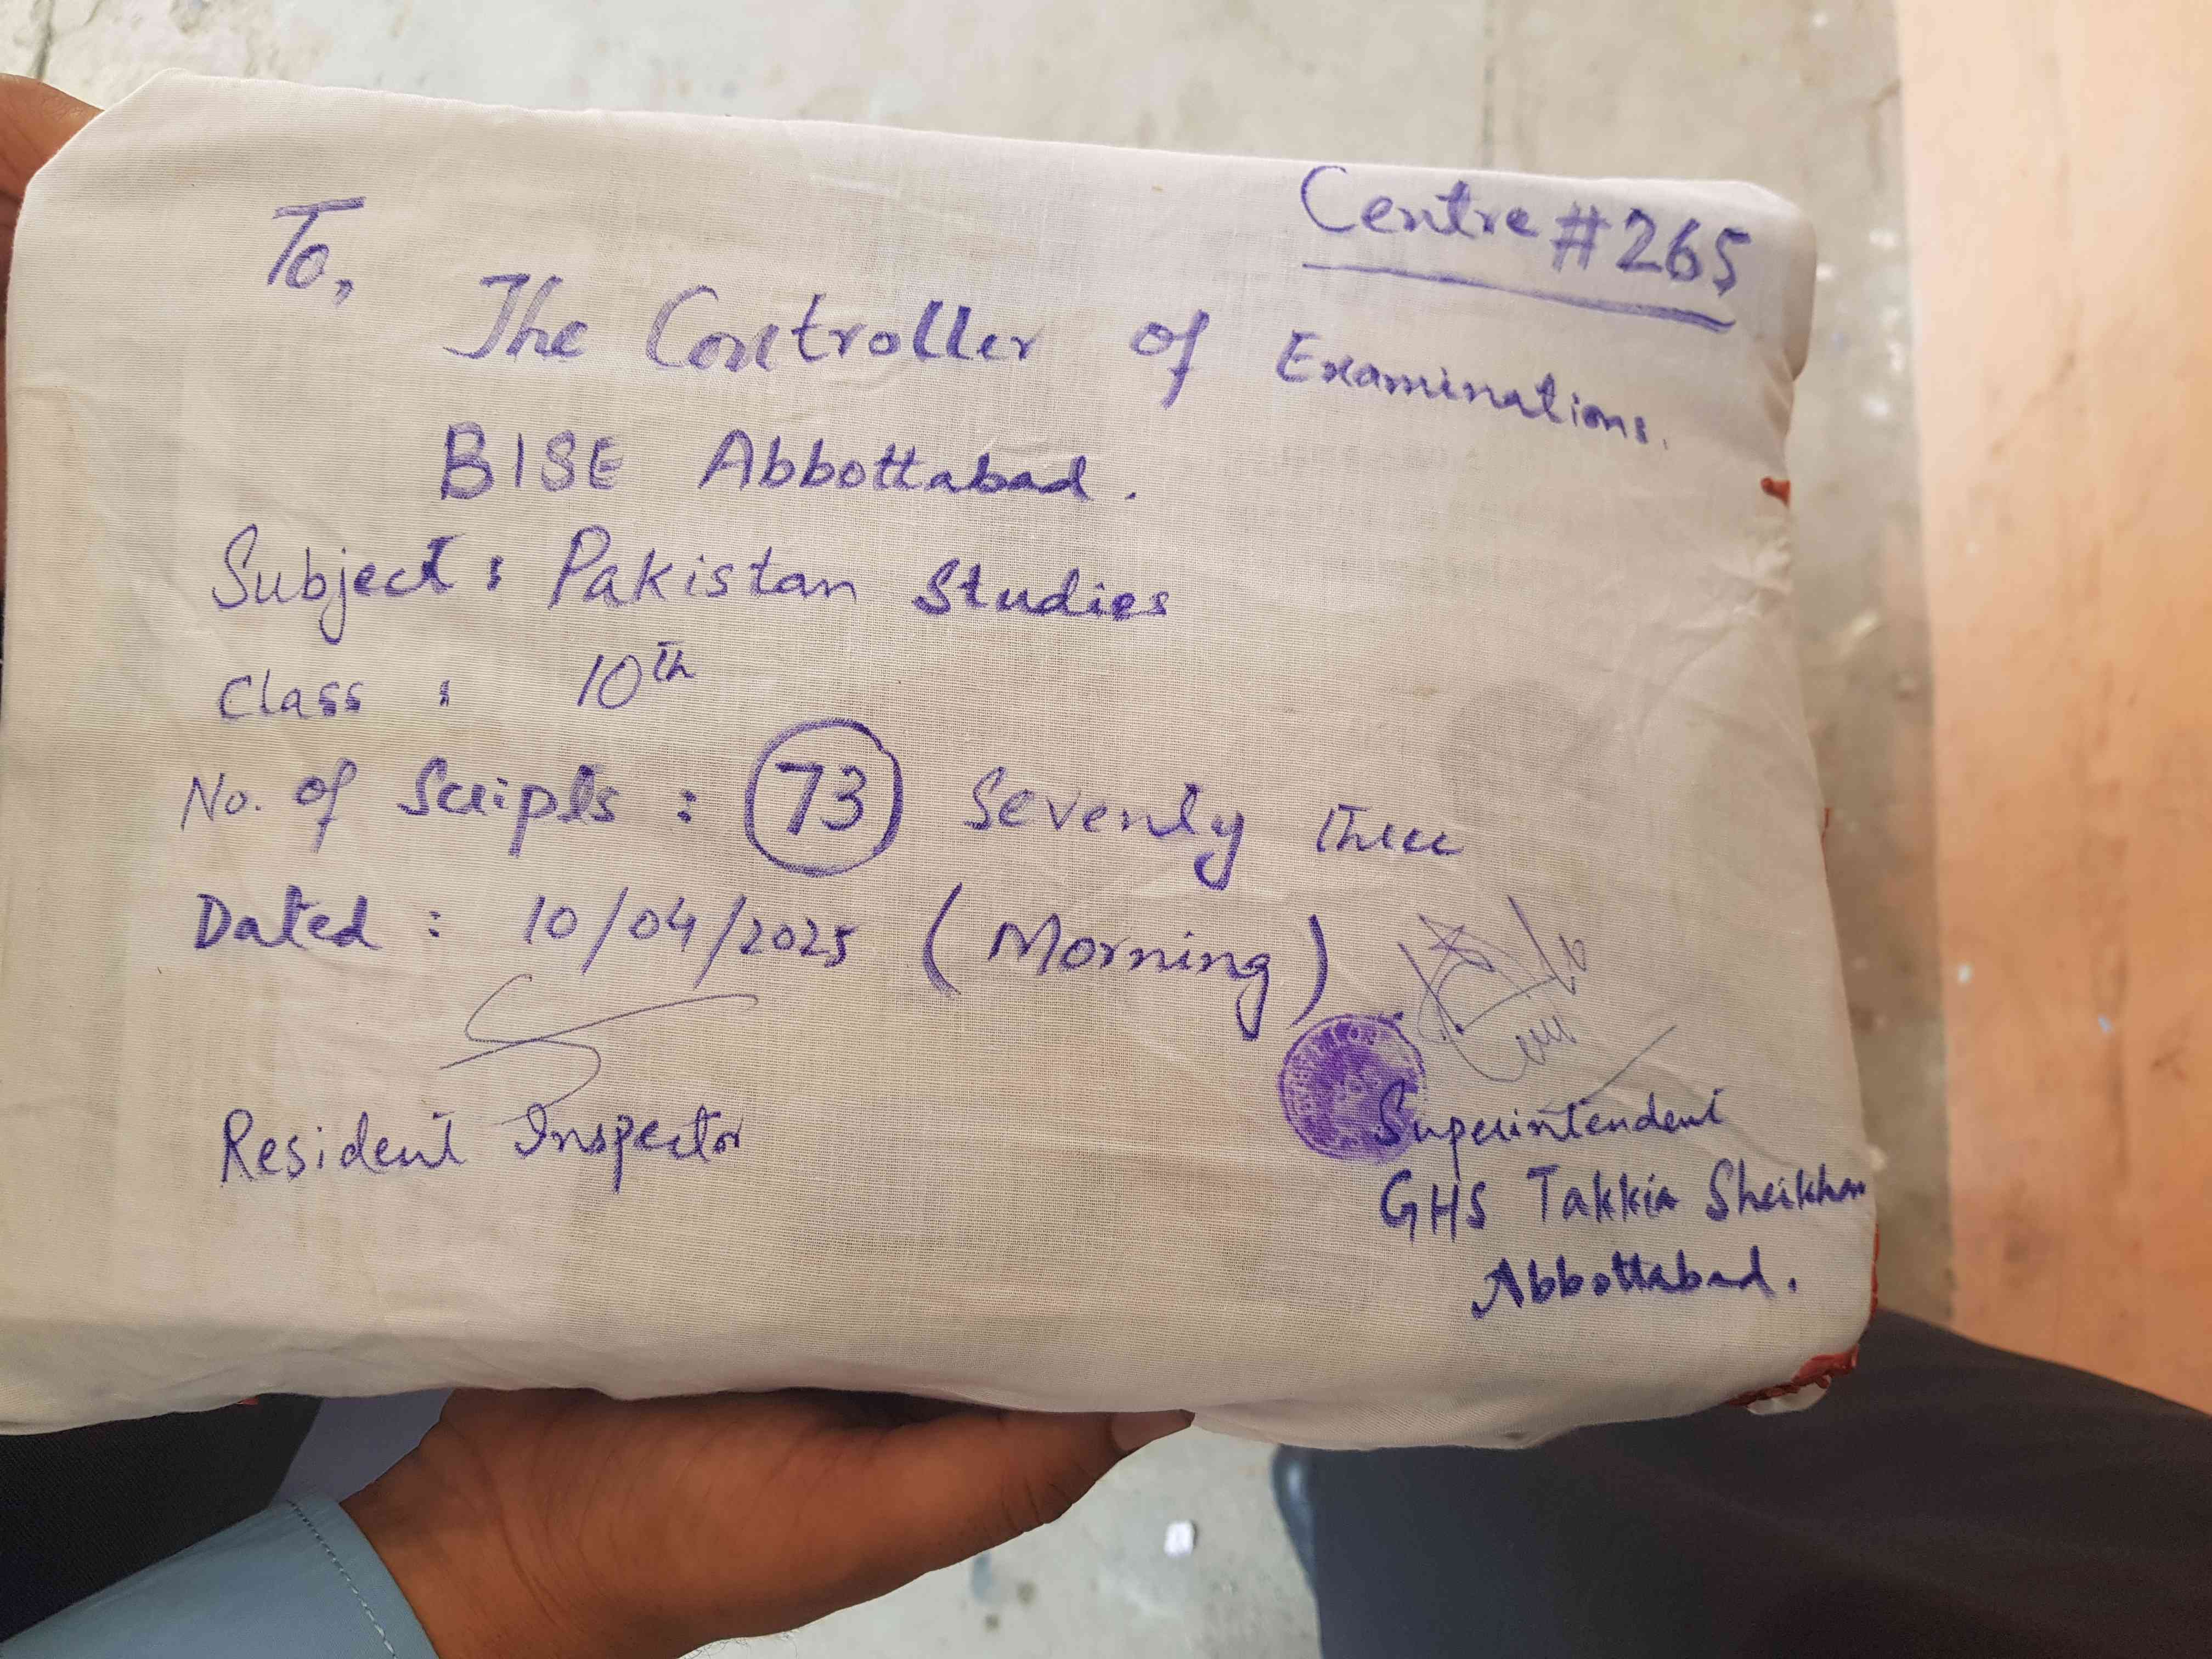 Centre #265
To,
The Controller of Examinations.
BISE Abbottabad.
Subject : Pakistan Studies
Class : 10th
No. of Scripts : 73 Seventy three
Dated : 10/04/2025 (Morning)
Resident Inspector
Superintendent
GHS Takkia Sheikhan
Abbottabad.